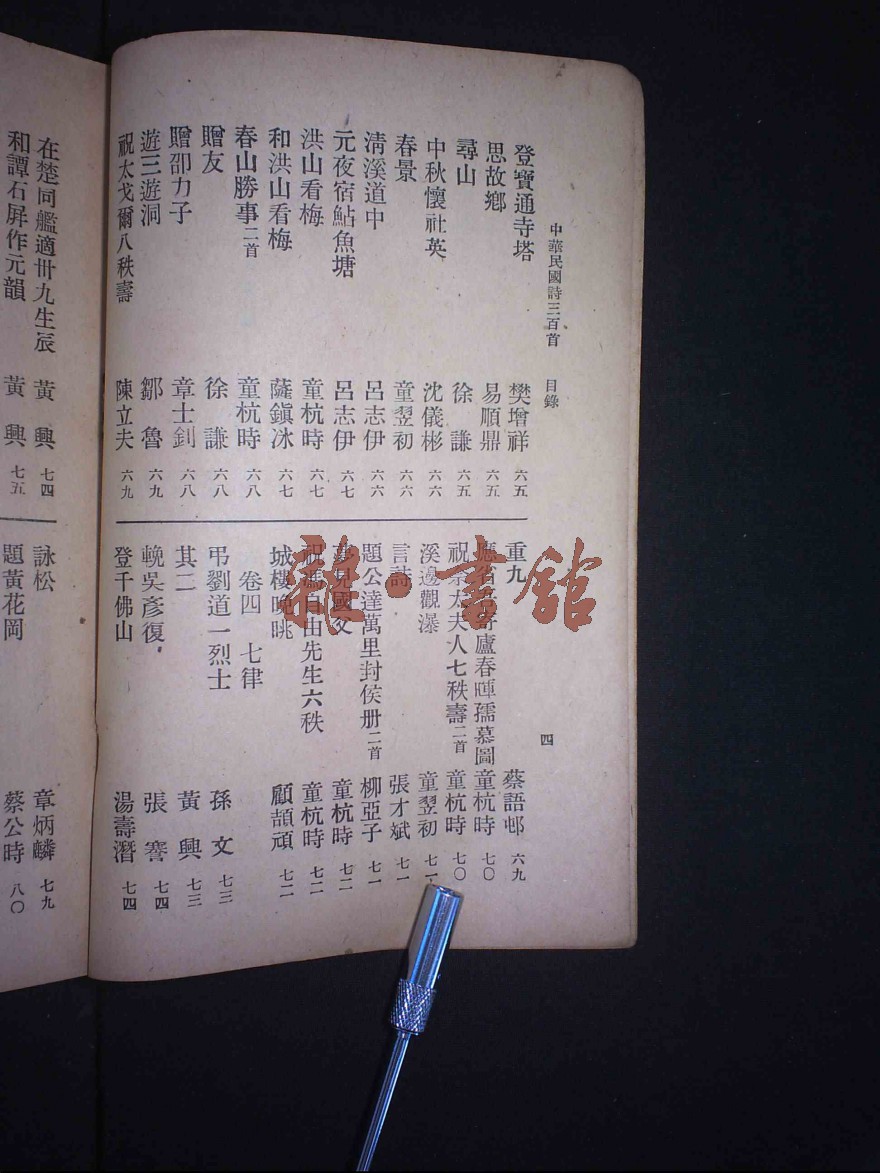 中華民國詩三百首 目錄 四
登寶通寺塔 樊增祥 六五
思故鄉 易順鼎 六五
尋山 徐謙 六五
中秋懷社英 沈儀彬 六六
春景 童翌初 六六
淸溪道中 呂志伊 六六
元夜宿鮎魚塘 呂志伊 六七
洪山看梅 童杭時 六七
和洪山看梅 薩鎭冰 六七
春山勝事二首 童杭時 六八
贈友 徐謙 六八
贈邵力子 章士釗 六八
遊三遊洞 鄒魯 六九
祝太戈爾八秩壽 陳立夫 六九
重九 蔡語邨 六九
應省吾寄廬春暉孺慕圖 童杭時 七〇
祝宗太夫人七秩壽二首 童杭時 七〇
溪邊觀瀑 童翌初 七一
言詩 張才斌 七一
題公達萬里封侯册二首 柳亞子 七一
夢見國父 童杭時 七二
祝馮自由先生六秩 童杭時 七二
城樓晚眺 顧頡頏 七二
卷四 七律
弔劉道一烈士 孫文 七三
其二 黃興 七三
輓吳彥復 張謇 七四
登千佛山 湯壽潛 七四
在楚同艦適卅九生辰 黃興 七四
和譚石屏作元韻 黃興 七五
詠松 章炳麟 七九
題黃花岡 蔡公時 八〇
雜·書館